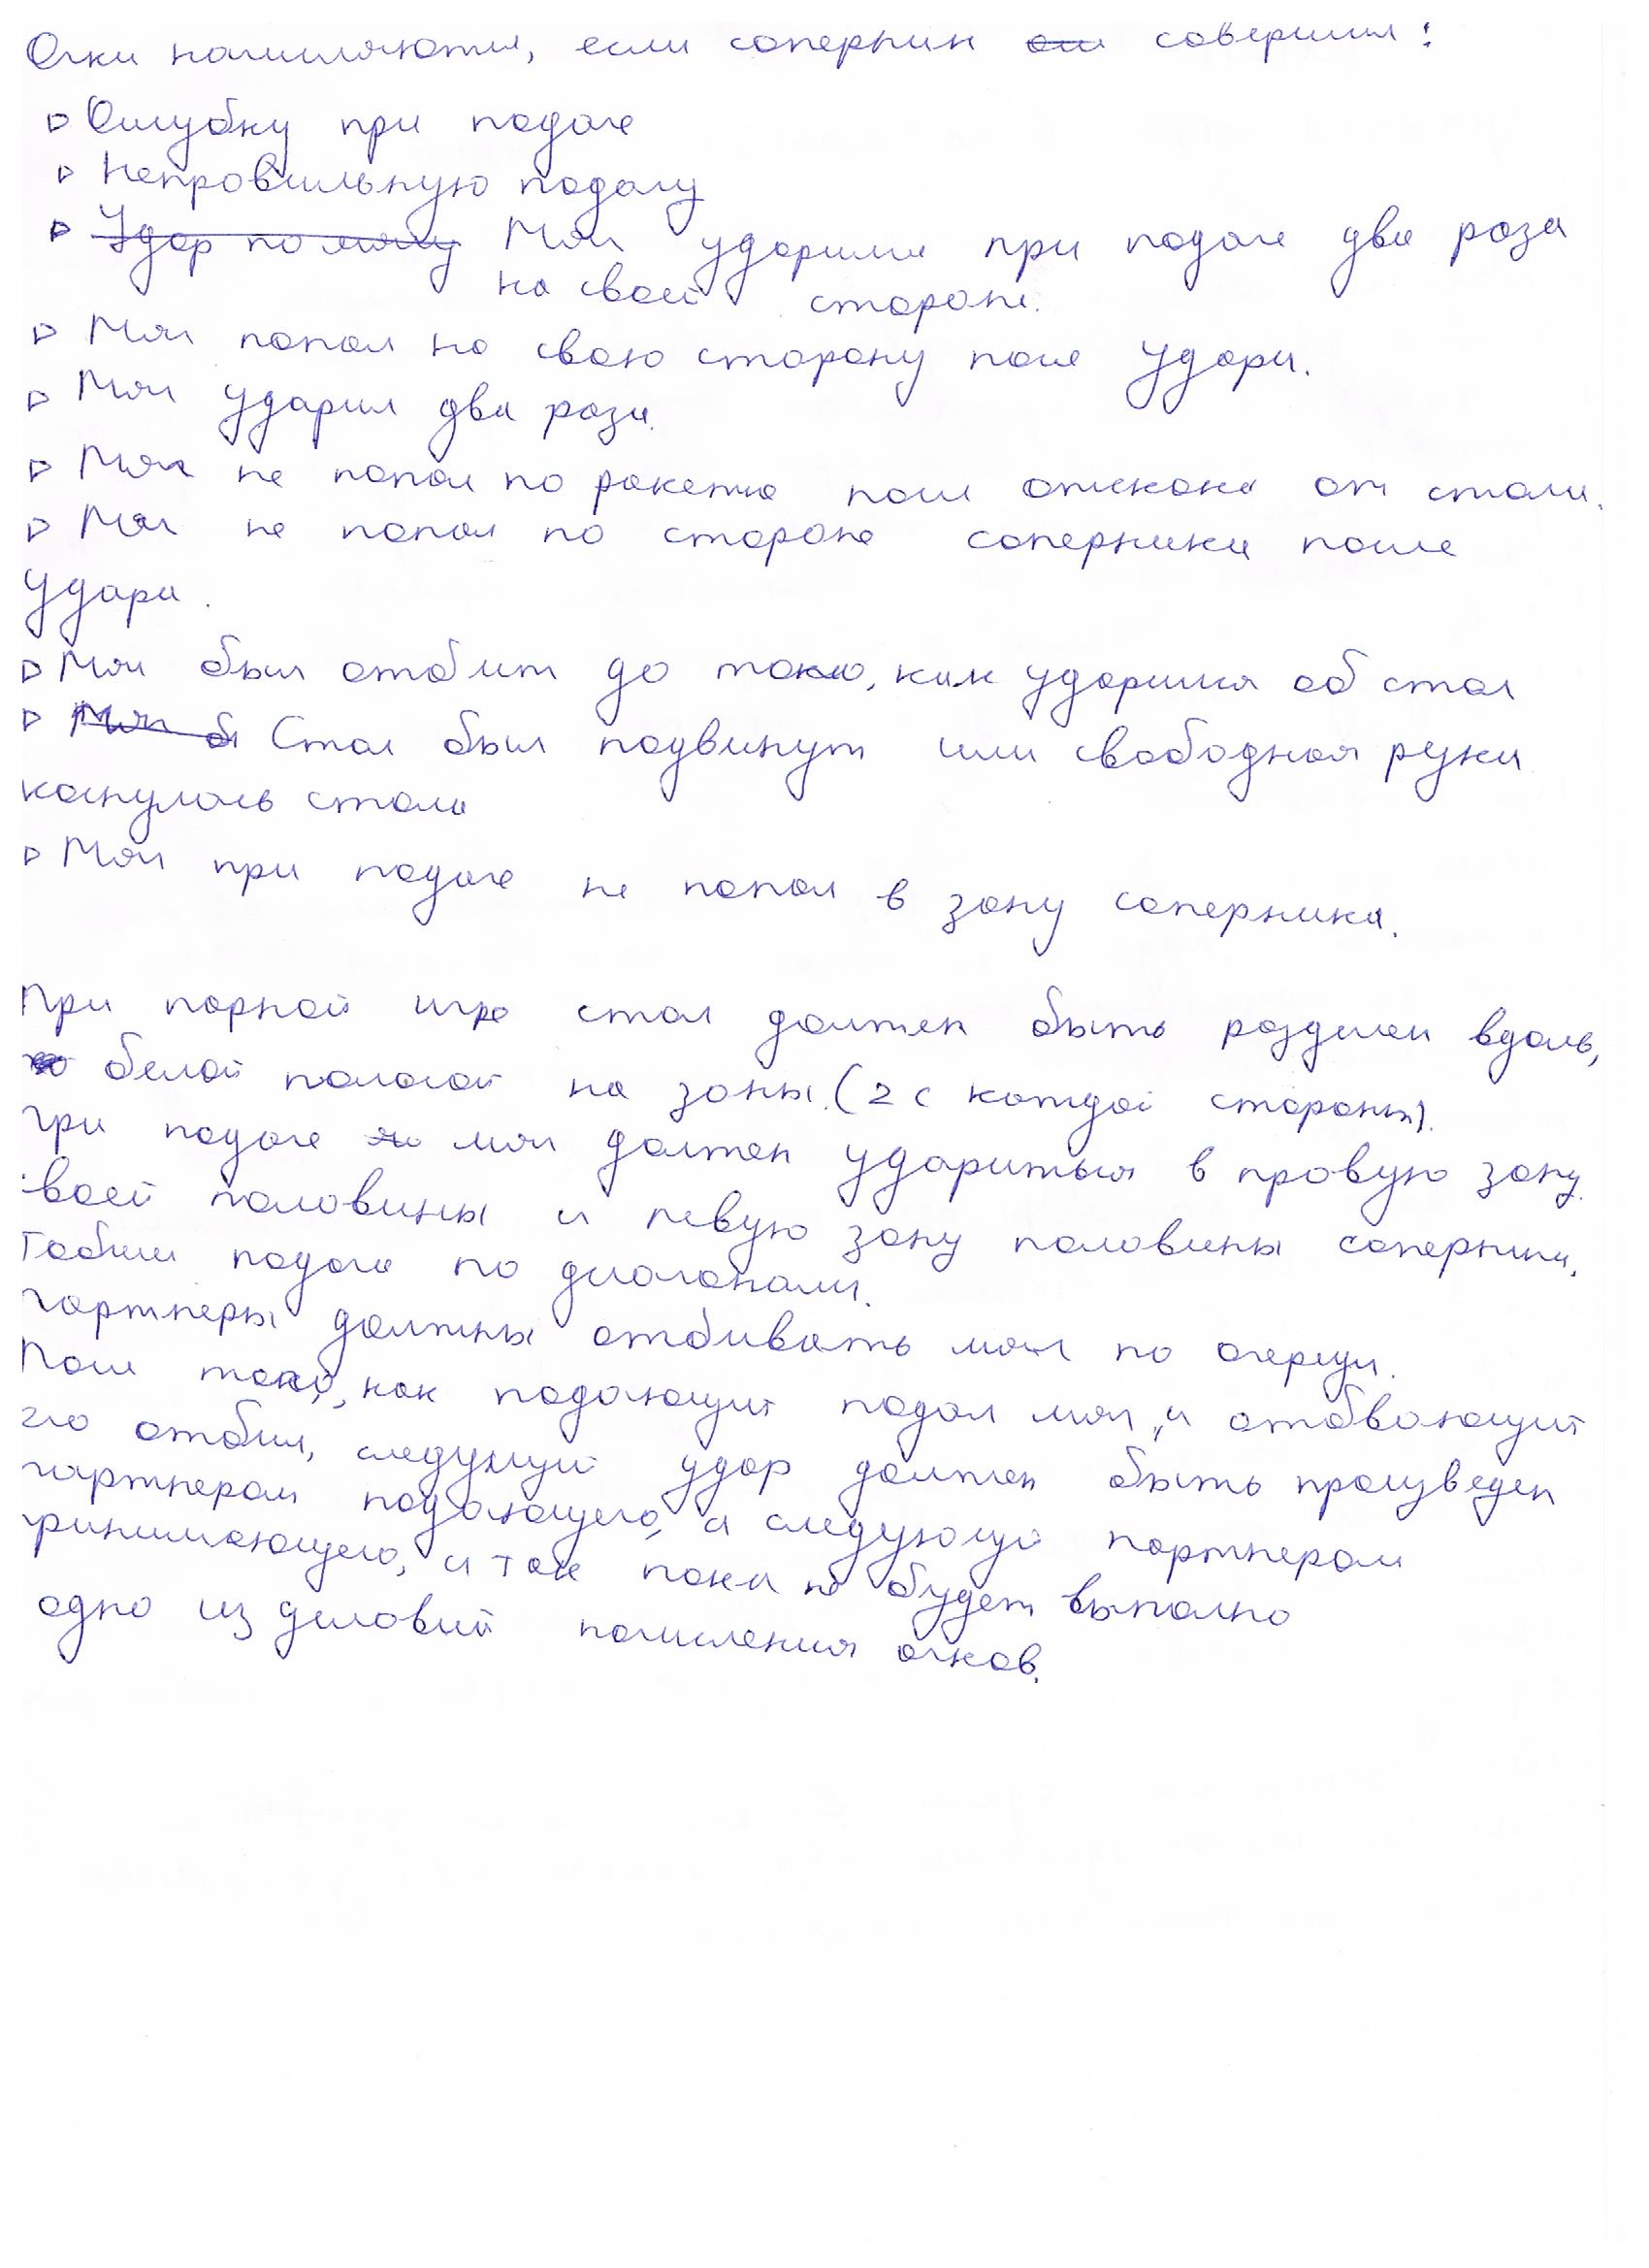 Очки начисляются, если соперник совершил:
Ошубку при подаче
Неправильную подачу
Удар по мячу Мяч ударился при подаче два раза
на своей стороне.
Мяч попал на свою сторону после удара.
Мяч ударил два раза.
Мяч не попал по ракетке после отскока от стола.
Мяч не попал по стороне соперника после
удара.
Мяч был отбит до того, как ударился об стол
Стол был подвинут или свободная рука
коснулась стола
Мяч при подаче не попал в зону соперника.
При парной игре стол должен быть разделен вдоль,
белой полосой на зоны. (2 с каждой стороны).
При подаче мяч должен удариться в правую зону
своей половины и левую зону половины соперника.
подача по диагонали.
Партнеры должны отбивать мяч по очереди.
После того, как подающий подал мяч, и отбвающий
его отбил, следущий удар должен быть произведен
партнером подающего, а следующий партнером
принимающего, и так пока не будет выполно
одно из условий начисления очков.